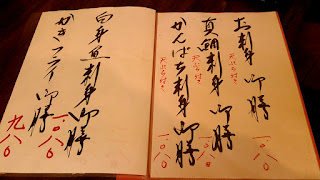 お刺身御膳
天ぷら付き
一〇八〇
真鯛刺身御膳
天ぷら付き
一〇八〇
かんぱち刺身御膳
一〇八〇
白身魚刺身御膳
一〇八〇
かきフライ御膳
九八〇